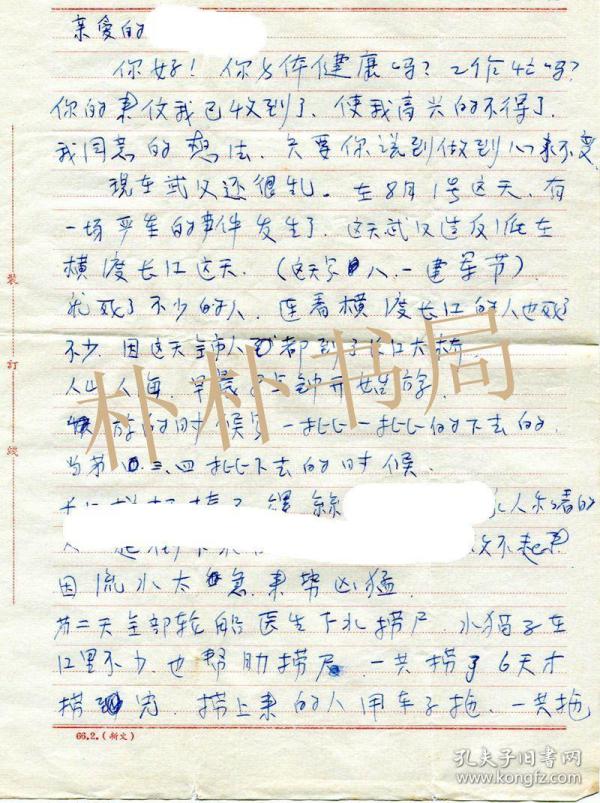 亲爱的
你好！你身体健康吗？工作忙吗？
你的来信我已收到了、使我高兴的不得了、
我同意的想法、只要你说到做到八来不变
现在武汉还很乱。在8月1号这天、有
一场严重的事件发生了、这天武汉造反派在
横渡长江这天、（这天是八、一建军节）、
死了不少的人、连着横渡长江的人也死了
不少、因这天全市人都都到了长江大桥、
人山人海、早晨 点钟开始放、
放的时候是一批一批的下去的、
当第 三、四批下去的时候、
人
不起来
因流水太急、来势凶猛、
第二天全部轮船医生下水捞尸、水猫子在
江里不少、也帮助捞尸、一共捞了6天才
捞完、捞上来的人用车子拖、一共拖
装
订
线
66.2.(新文)
朴朴书局
孔夫子旧书网
www.kongfz.com